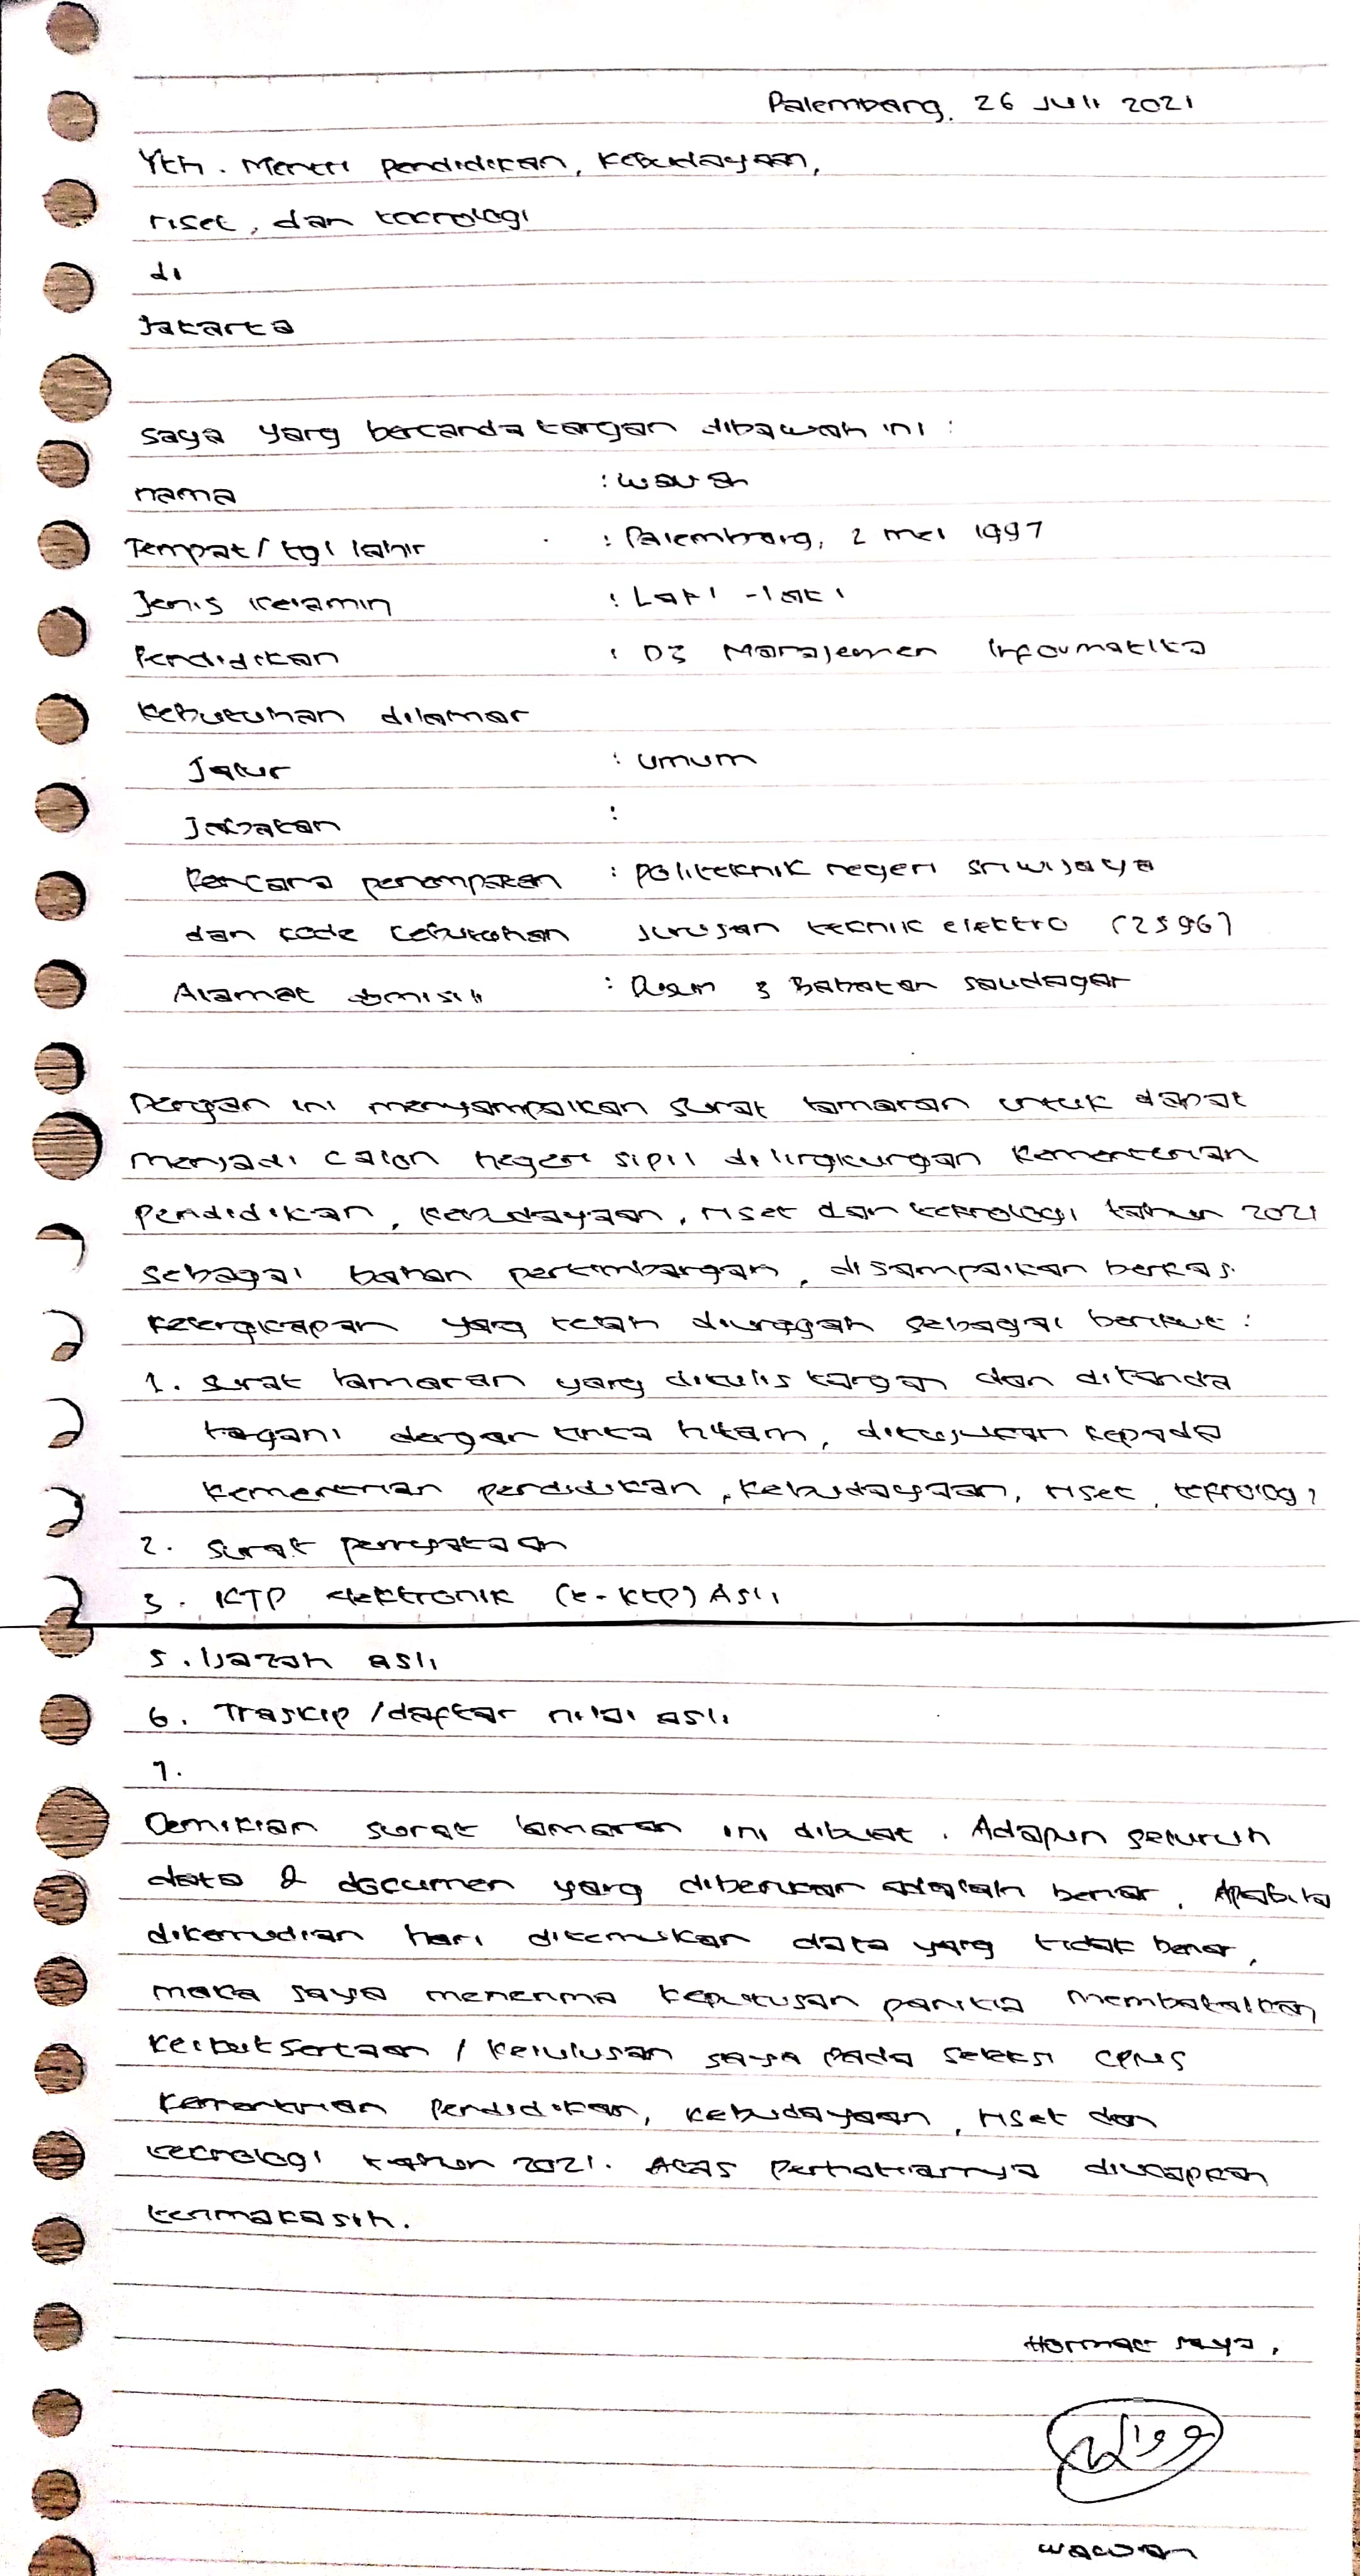 Palembang, 26 Juli 2021
Yth. Menteri pendidikan, Kebudayaan,
riset, dan teknologi
di
Jakarta
saya yang bertanda tangan dibawah ini :
nama :
Tempat / tgl lahir : Palembang, 2 mei 1997
Jenis kelamin : Laki - laki
Pendidikan : D3 Manajemen Informatika
Kebutuhan dilamar
Jalur : umum
Jabatan :
Rencana penempatan : politeknik negeri sriwijaya
dan kode kebutuhan jurusan teknik elektro (2596)
Alamat domisili : 3 Babatan saudagar
Dengan ini menyampaikan surat lamaran untuk dapat
menjadi calon negeri sipil dilingkungan Kementerian
pendidikan, kebudayaan, riset dan teknologi tahun 2021
sebagai bahan pertimbangan, disampaikan berkas
kelengkapan yang telah diunggah sebagai berikut :
1. surat lamaran yang ditulis tangan dan ditanda
tagani dengan tinta hitam, ditujukan kepada
kementrian pendidikan, kebudayaan, riset, teknologi
2. surat pernyataan
3. KTP elektronik (e-KTP) Asli
5. Ijazah asli
6. Traskip / daftar nilai asli
7.
Demikian surat lamaran ini dibuat. Adapun seluruh
data & documen yang diberikan adalah benar. Apabila
dikemudian hari ditemukan data yang tidak benar,
maka saya menerima keputusan panitia membatalkan
keikutsertaan / kelulusan saya pada seleksi CPNS
Kementrian Pendidikan, Kebudayaan, riset dan
teknologi tahun 2021. Atas perhatiannya diucapkan
terimakasih.
Hormat saya,
wawan